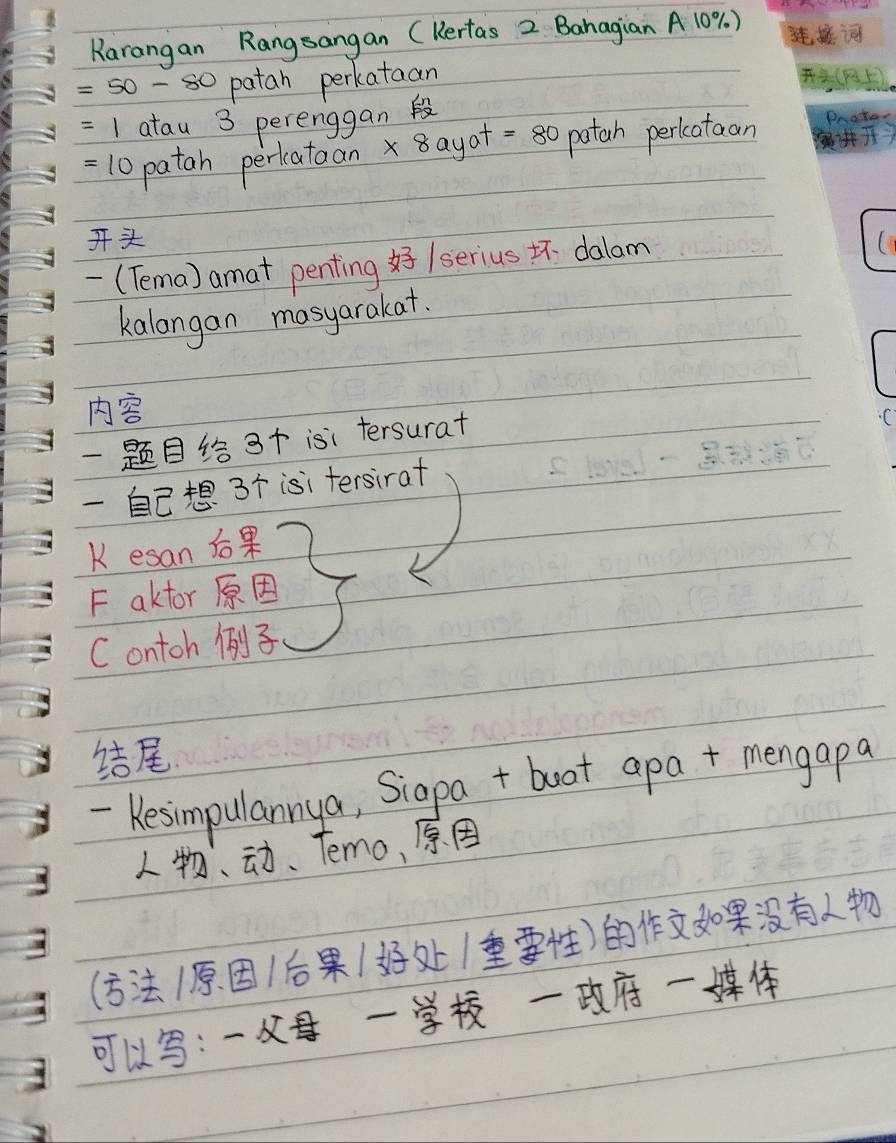 Karangan Rangsangan (Kertas 2 Bahagian A 10%)
= 50 - 80 patah perkataan
= 1 atau 3 perenggan 段
= 10 patah perkataan × 8 ayat = 80 patah perkataan
开头
- (Tema) amat penting 好 / serius 坏 dalam
kalangan masyarakat.
内容
- 题目给 3个 isi tersurat
- 自己想 3个 isi tersirat
Kesan 后果
Faktor 原因
Contoh 例子
结尾
- Kesimpulannya, Siapa + buat apa + mengapa
人物、动、Tema、原因
(方法 / 原因 / 后果 / 好处 / 重要性) 的作文如果没有人物
可以写: - 父母 - 学校 - 政府 - 媒体
连接词
开头
演讲开头